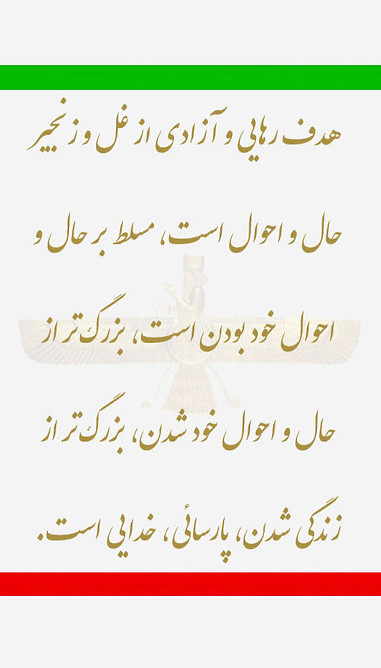 هدف رهایی و آزادی از غل و زنجیر
حال و احوال است، مسلط بر حال و
احوال خود بودن است، بزرگ‌تر از
حال و احوال خود شدن، بزرگ‌تر از
زندگی شدن، پارسائی، خدایی است.